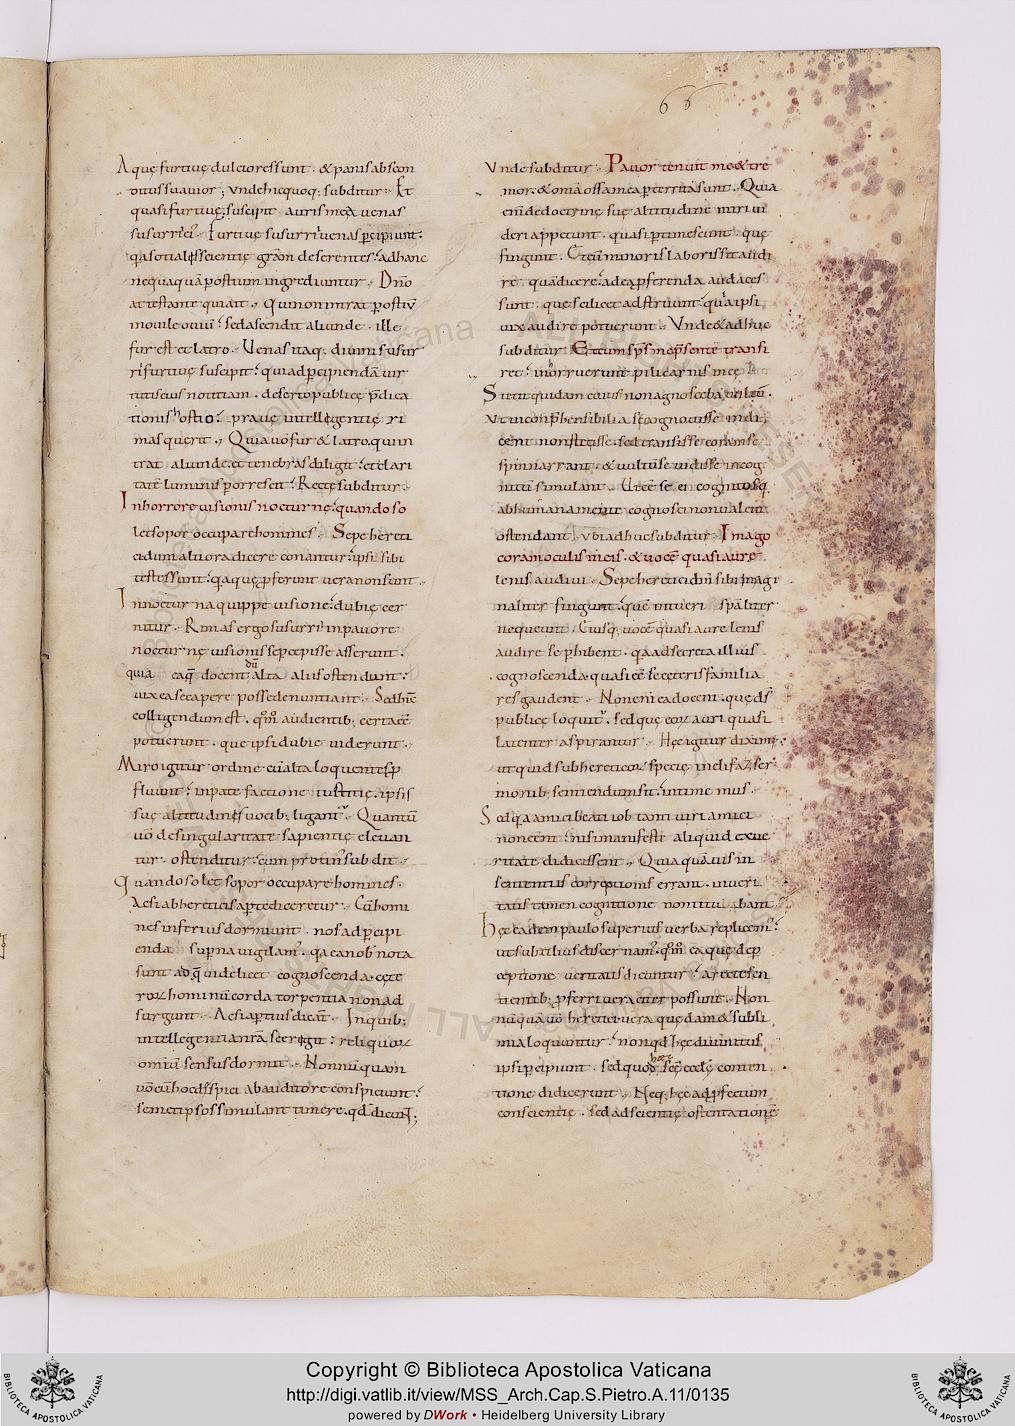 66
Aquę furtiuę dulciores sunt · & panis abscon
ditus suauior ; vnde hicquoq; subditur · Et
quasi furtiuę suscipit auris mea uenas
susurri ei · Furtiuę susurri uenas p̄cipiunt ·
ad hanc
nequaquā p ostium ingrediuntur · Dn̄o
attestante qui ait ·, Qui non intrat p ostiū
in ouile ouiū · sed ascendit aliunde · ille
fur est et latro · Uenas itaq; diuini susur
ri furtiuę suscipit · quia dp̄cipiendā uir
tutis eius notitiam · deserto publicę p̄dica
tionis hostio · prauę intellegentię ri
mas querit ·, Quia uō fur & latro qui in
trat aliunde et tenebras diligit · et clari
tatē luminis p orrescit · Recte subditur ·
In horrore uisionis nocturnę · quando so
let sopor occupare homines · Sepe hereti
ci dum altiora dicere conantur · ipsi sibi
testes sunt · q̄a quę p̄ferunt uera non sunt ·,
In nocturna quippe uisione · dubię cer
nitur · Rimas ergo susurri in pauore
nocturnę uisionis se p̄cepisse asserunt ·
quia eaq; docent dū alta aliis ostendunt ·
uix ea se capere posse denuntiant · Sed hinc
colligendum est · qm̄ audientib; certa eē
potuerunt · que ipsi dubie uiderunt ·
Miro igitur ordine cū alta loquentes p̄
fluunt · in patefactione iustitię ipsis
suę altitudinis uocib; ligant̄ · Quantū
uō de singularitate sapientię eleuan
tur · ostenditur · cum protin' subdit ·,
Quando solet sopor occupare homines ·
Ac si ab hereticis ap̄te diceretur · Cū homi
nes inferius dormiunt · nos ad p̄cipi
enda superna uigilam' · q̄a ea nob' nota
sunt ad q̄ uidelicet cognoscenda · cęte
roꝝ hominū corda torpentia non ad
surgunt · Ac si ap̄tius dicāt · In quib;
intellegentia nr̄a se erigit · reliquoꝝ
omiū sensus dormit · Nonnūquam
uō cū hoc despici ab auditore conspiciunt ·
semet ipsos simulant timere · qđ dicunt ;
Vnde subditur · Pauor tenuit me & tre
mor · & om̄a ossa mea p̄territa sunt · Quia
enī de doctrinę suę altitudine miri ui
deri appetunt · quasi p̄timescunt · quę
fingunt · Et cū minoris laboris sit audi
re quā dicere · adea p̄ferenda audaces
sunt · que scilicet adstruunt · quia ipsi
uix audire potuerunt · Vnde & adhuc
subditur · Et cum sp̄s me p̄sente transi
ret · inhorruerunt pili carnis meę
Stetit quidam cuius non agnoscebā uultū ·
Vt inconp̄hensibilia se cognouisse indi
cent non stetisse · sed transisse coram se
sp̄m narrant · & uultū se uidisse incog
nitū simulant · Ut eē se ei cognitos q̄
ab humana mente cognosci non ualent
ostendant · vbi adhuc subditur · Imago
coram oculis meis · & uocē quasi aurę
lenis audiui · Sepe heretici dm̄ sibi imagi
naliter fingunt · quē intueri sp̄aliter
nequeunt · Cuiusq; uocē quasi aure lenis
audire se phibent · q̄a ad secreta illius
cognoscenda · quasi eē se ceteris familia
res gaudent · Non enī ea docent · quę d̄s
publicę loquit̄ · sed quę eoꝝ auri quasi
latenter aspirantur · Hęc igitur diximus ·
ut quid sub hereticoꝝ specię in elifaz ser
monib; sentiendum sit · intimemus ·
Sed q̄a amici beati iob tanti uiri amici
non eēnt · nisi manifeste aliquid ex ue
ritate didicissent · Quia quāuis in
sententiis corrəptionis errant · in ueri
tatis tamen cognitione non titubant ·
Hęc eadem paulo superius uerba replicem' ·
ut subtilius discernam' · qm̄ ea quę de p̄
ceptione ueritatis dicuntur · a recte sen
tientib; p̄ferri ueraciter possunt · Non
nūquā uō heretici uera quędam & subli
mia loquuntur · non qđ hęc diuinitus
ipsi p̄cipiunt · sed quod hęc scę̄ ęccłę conten
tione didicerunt · Neq; hęc ad p̄fectum
conscientię · sed ad scientię ostentationē
Copyright © Biblioteca Apostolica Vaticana
http://digi.vatlib.it/view/MSS_Arch.Cap.S.Pietro.A.11/0135
powered by DWork • Heidelberg University Library